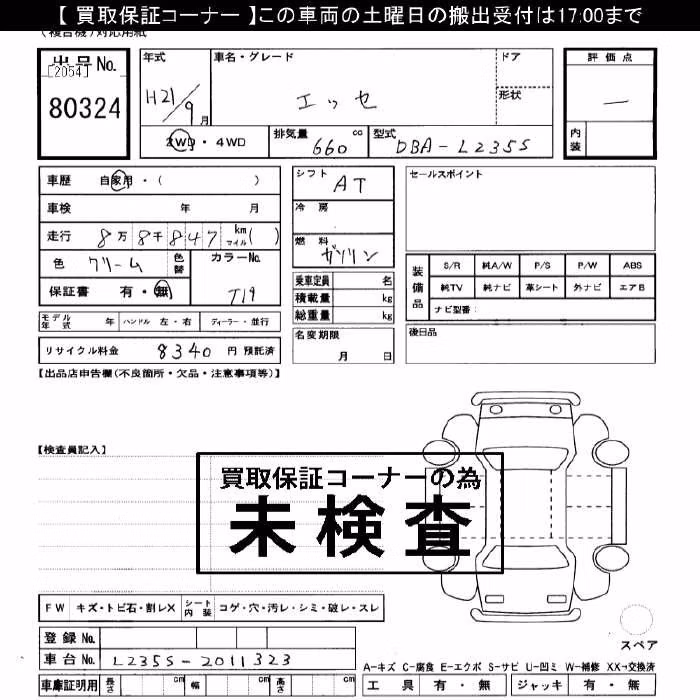 【 買取保証コーナー 】この車両の土曜日の搬出受付は17:00まで
(複合機)対応用紙
出品No.
[2054]
80324
年式
H21/9月
車名・グレード
エッセ
ドア
形状
評価点
—
内装
2WD・4WD
排気量 660 cc
型式 DBA-L235S
車歴 自家用・( )
車検 年 月
走行 8万8千847 km マイル( )
色 クリーム 色替
カラーNo. T19
保証書 有・無
モデル年式 年 ハンドル 左・右 ディーラー・並行
リサイクル料金 8340 円 預託済
シフト AT
冷房
燃料 ガソリン
乗車定員 名
積載量 kg
総重量 kg
名変期限
月 日
セールスポイント
装備品
S/R 純A/W P/S P/W ABS
純TV 純ナビ 革シート 外ナビ エアB
ナビ型番:
後日品
【出品店申告欄(不良箇所・欠品・注意事項等)】
【検査員記入】
買取保証コーナーの為
未検査
FW キズ・トビ石・割レX シート内装 コゲ・穴・汚レ・シミ・破レ・スレ
登録No.
車台No. L235S-2011323
車庫証明用 長さ cm 幅 cm 高さ cm
スペア
A-キズ C-腐食 E-エクボ S-サビ U-凹ミ W-補修 XX→交換済
工具 有・無 ジャッキ 有・無